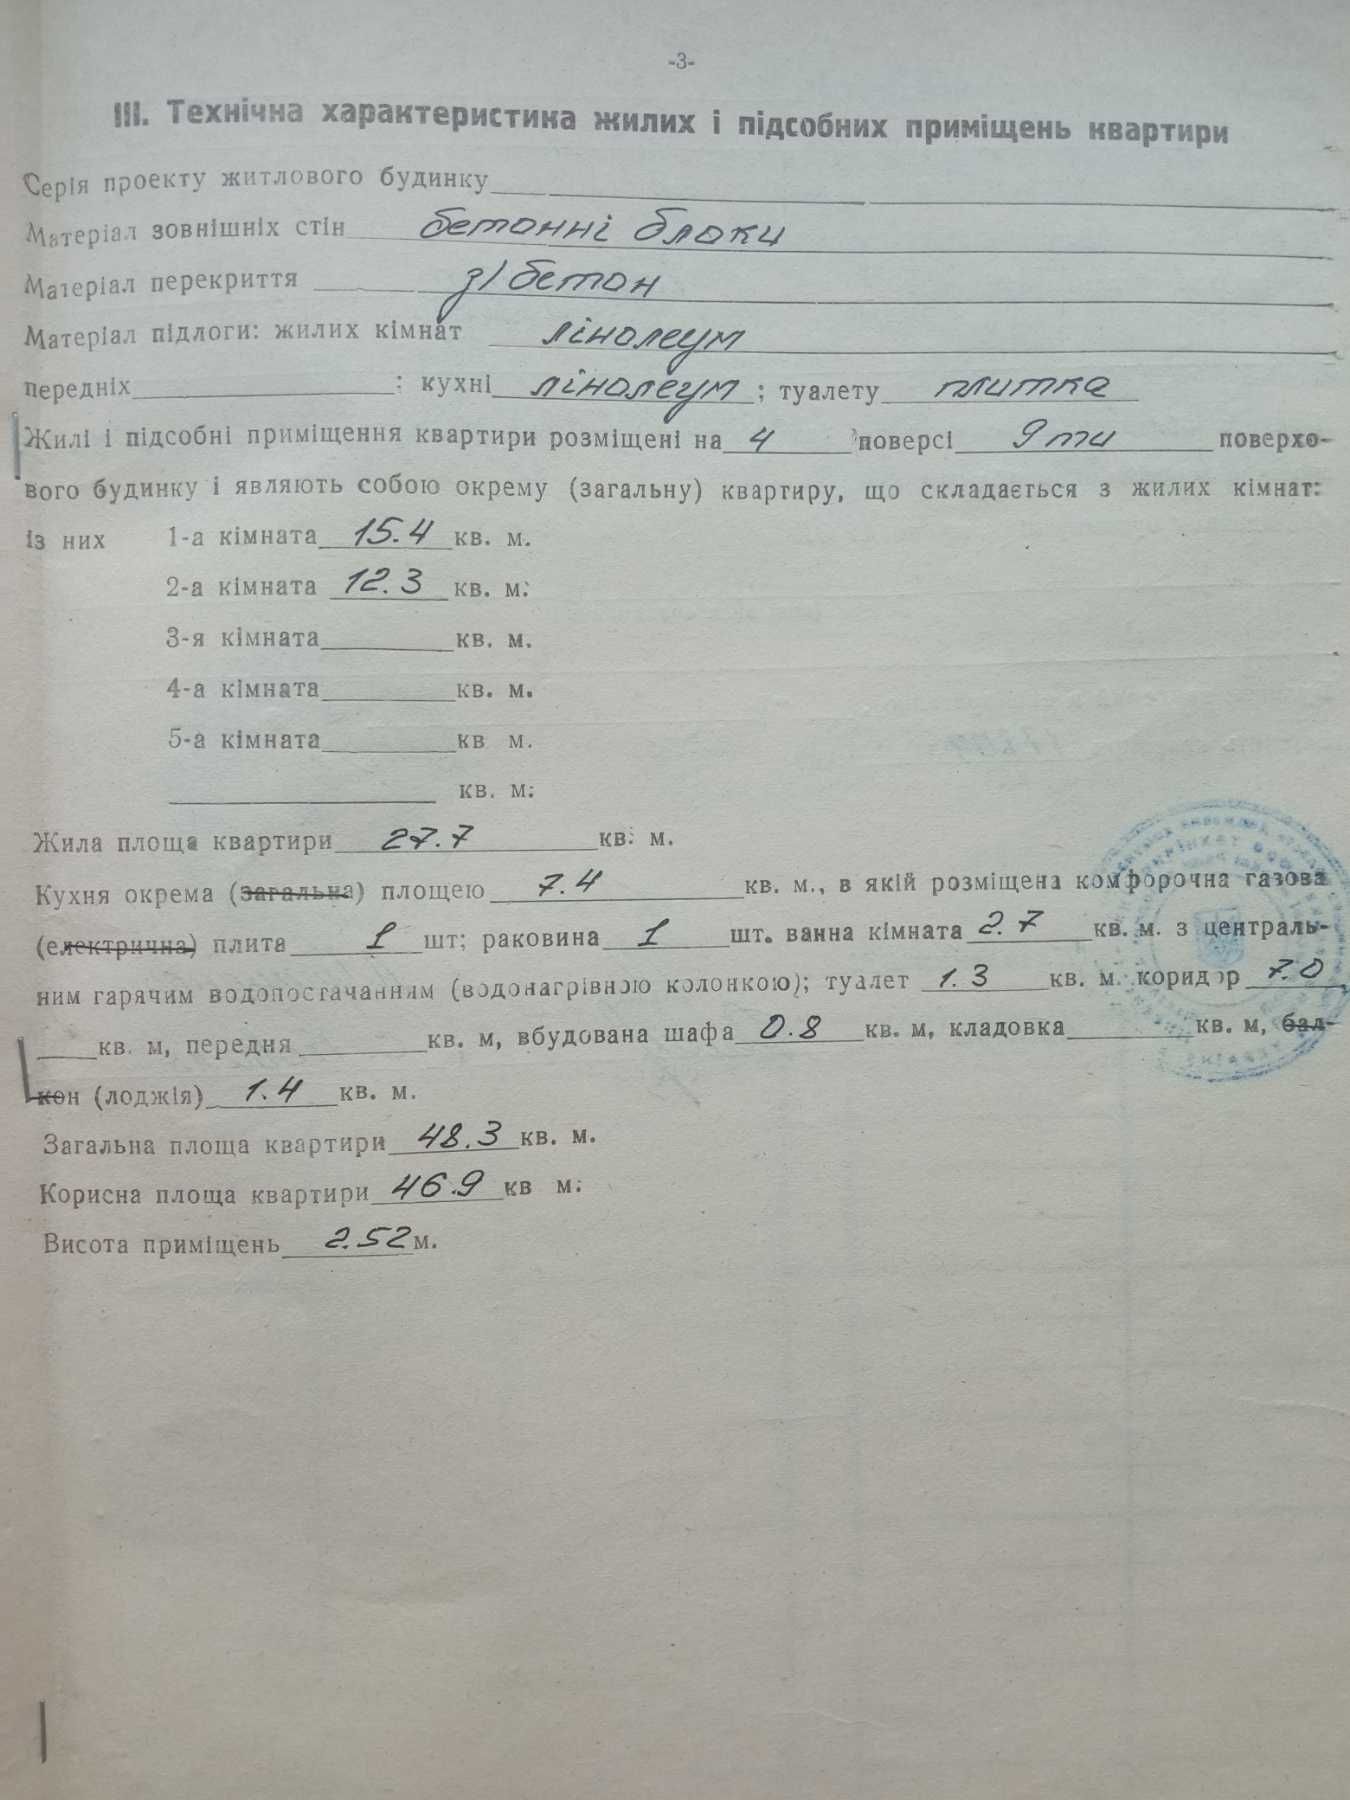 -3-
III. Технічна характеристика жилих і підсобних приміщень квартири
Серія проекту житлового будинку
Матеріал зовнішніх стін бетонні блоки
Матеріал перекриття з/бетон
Матеріал підлоги: жилих кімнат лінолеум
передніх ; кухні лінолеум ; туалету плитка
Жилі і підсобні приміщення квартири розміщені на 4 поверсі 9 ти поверхо-
вого будинку і являють собою окрему (загальну) квартиру, що складається з жилих кімнат:
із них 1-а кімната 15.4 кв. м.
2-а кімната 12.3 кв. м.
3-я кімната кв. м.
4-а кімната кв. м.
5-а кімната кв м.
кв. м.
Жила площа квартири 27.7 кв. м.
Кухня окрема (загальна) площею 7.4 кв. м., в якій розміщена комфорочна газова
(електрична) плита 1 шт; раковина 1 шт. ванна кімната 2.7 кв. м. з централь-
ним гарячим водопостачанням (водонагрівною колонкою); туалет 1.3 кв. м. коридор 7.0
кв. м, передня кв. м, вбудована шафа 0.8 кв. м, кладовка кв. м, бал-
кон (лоджія) 1.4 кв. м.
Загальна площа квартири 48.3 кв. м.
Корисна площа квартири 46.9 кв м.
Висота приміщень 2.52 м.